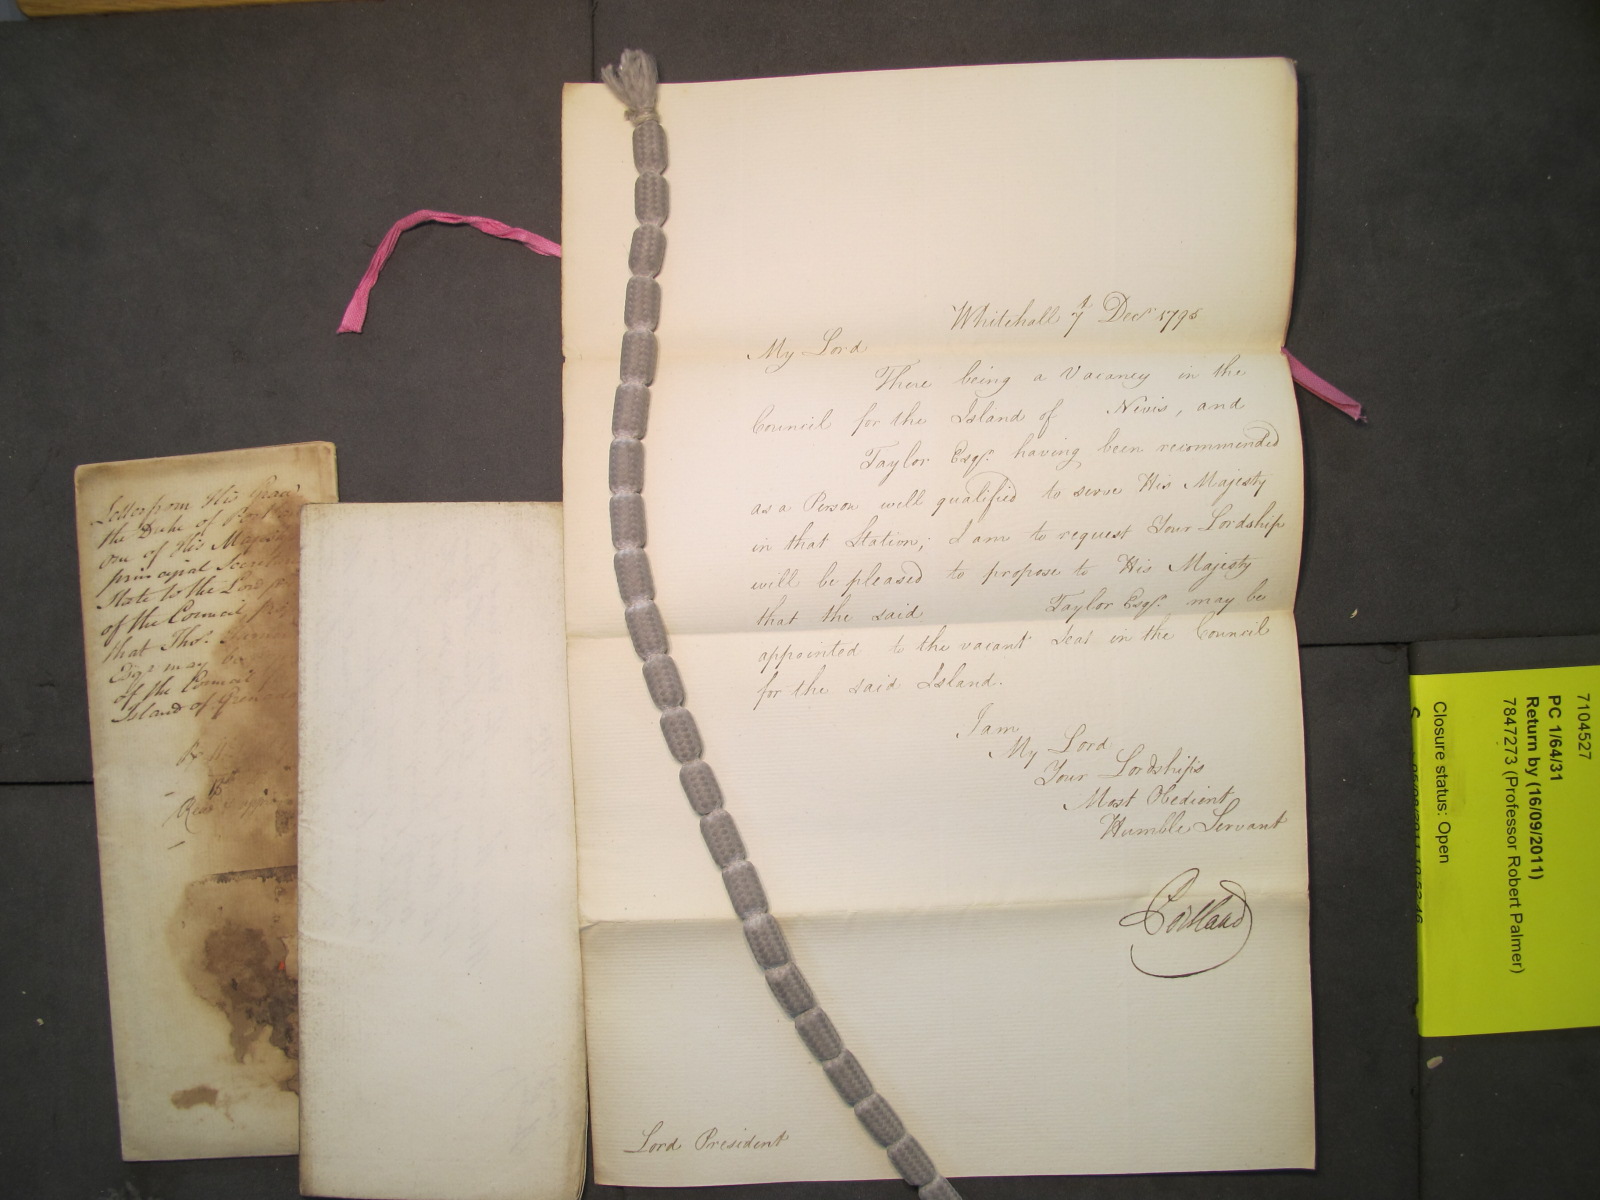 Whitehall 7 Decr 1795
My Lord
There being a Vacancy in the
Council for the Island of Nevis, and
Taylor Esqr. having been recommended
as a Person well qualified to serve His Majesty
in that Station; I am to request Your Lordship
will be pleased to propose to His Majesty
that the said Taylor Esqr. may be
appointed to the vacant Seat in the Council
for the said Island.
I am
My Lord
Your Lordship's
Most Obedient
Humble Servant
Portland
Lord President
Letter from His Grace
the Duke of
one of His Majesty
principal
State to the Lord
of the Council
that Thos.
Esqr may be
of the Council
Island of
Read &
7104527
PC 1/64/31
Return by (16/09/2011)
7847273 (Professor Robert Palmer)
Closure status: Open